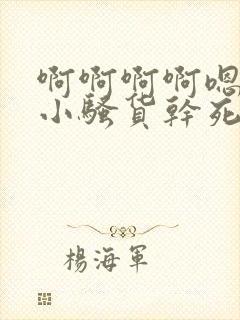 啊啊啊啊嗯
小騷货幹死
楊海軍